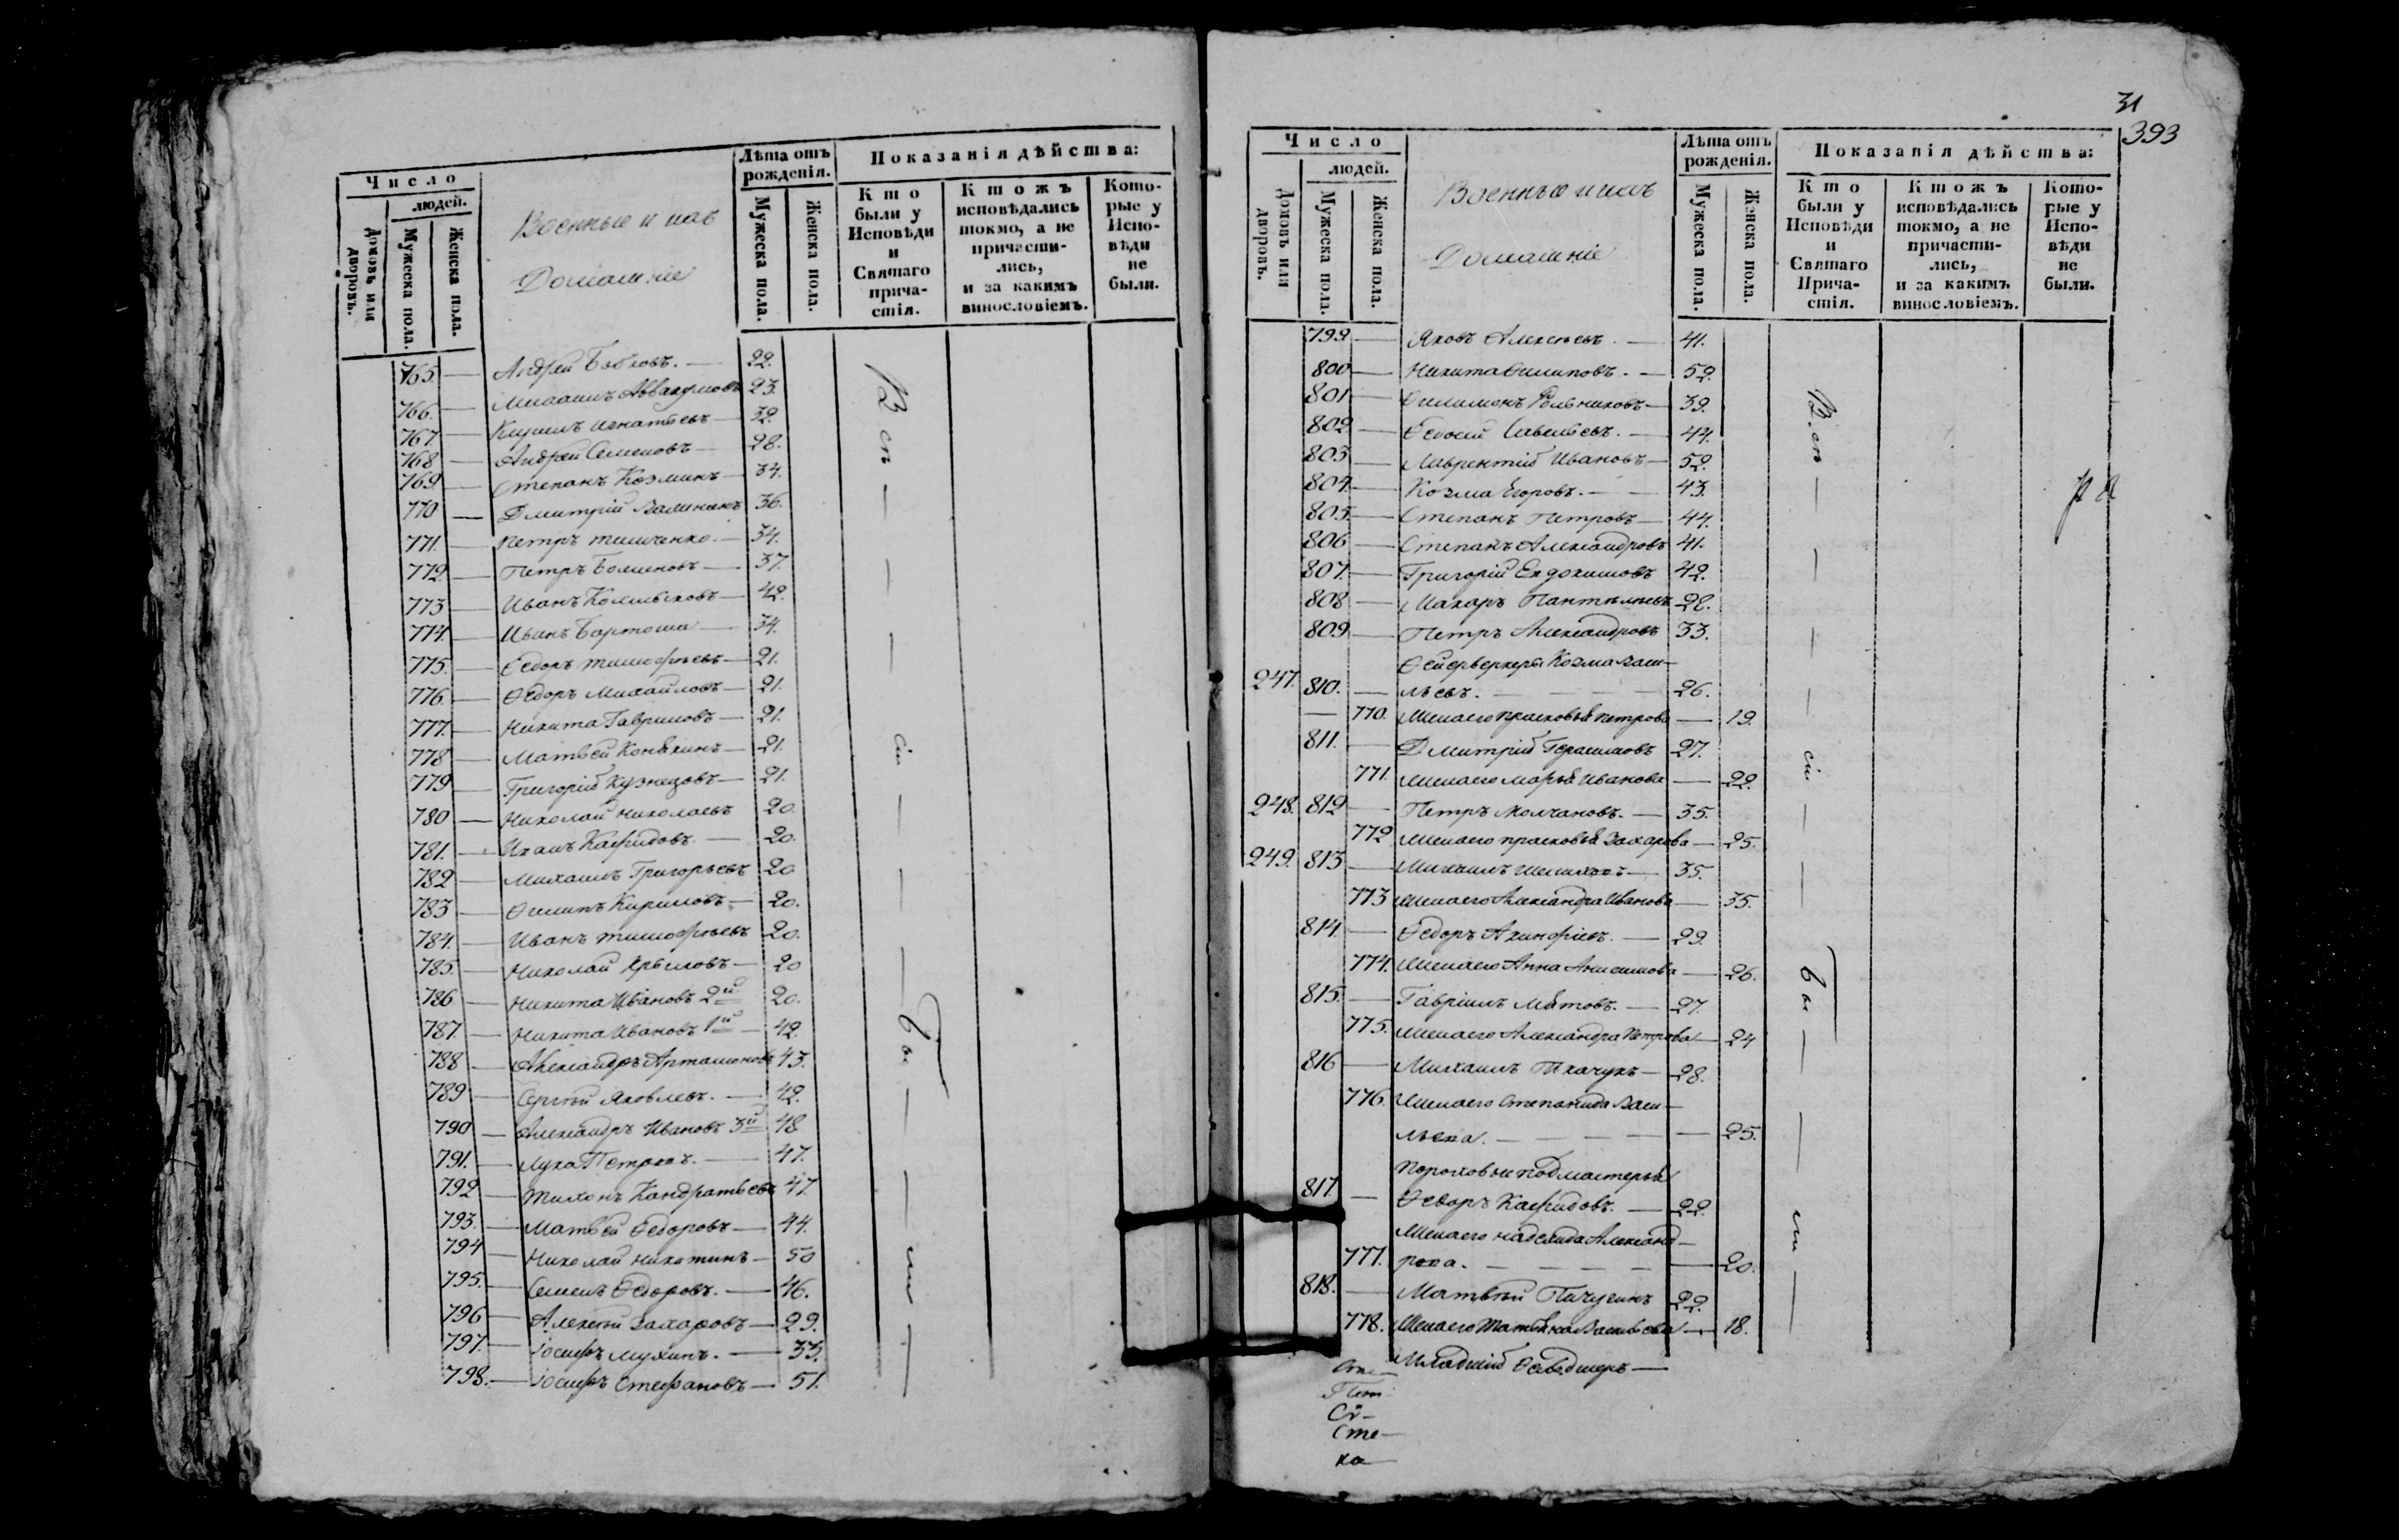 Число
людей.
Домовъ или дворовъ.
Мужеска пола.
Женска пола.
Военные и ихъ
Домашніе
Лѣта отъ рожденія.
Мужеска пола.
Женска пола.
Показанія дѣйства:
Кто были у Исповѣди и Святаго прича-стія.
Ктожъ исповѣдались токмо, а не причасти-лись, и за какимъ винословіемъ.
Кото-рые у Испо-вѣди не были.
765. — Андрей Бобковъ. — 22.
766. — Михаилъ Аввакумовъ 23.
767 — Кирилъ Игнатьевъ — 32.
768 — Андрей Семеновъ — 28.
769 — Степанъ Козминъ — 34.
770 — Дмитрій Калининъ 36.
771. — Петръ Тимченко. — 34.
772 — Петръ — 37.
773 — Иванъ — 42.
774. — Иванъ Бартоша — 34.
775. — Ѳедоръ Тимофѣевъ — 21.
776. — Ѳедоръ Михайловъ — 21.
777. — Никита Гавриловъ — 21.
778 — Матвей Конякинъ — 21.
779 — Григорій Кузнецовъ — 21.
780 — Николай Николаевъ 20.
781. — — 20.
782 — Михаилъ Григорьевъ 20
783 — Филипъ Кириловъ — 20.
784. — Иванъ Тимофѣевъ 20.
785. — Николай Крыловъ — 20
786 — Никита Ивановъ 2й 20.
787. — Никита Ивановъ 1й — 42.
788 — Александръ Артамоновъ 43.
789 — Сергѣй Яковлевъ. — 42.
790 — Александръ Ивановъ 3й 48
791. — Лука Петровъ. — 47.
792 — Тихонъ Кандратьевъ 47.
793. — Матвей Ѳедоровъ — 44.
794 — Николай Никитинъ — 50
795. — Семенъ Ѳедоровъ. — 46.
796 — Алексѣй Захаровъ — 29.
797. — Іосифъ Мухинъ. — 33.
798. — Іосифъ Стефановъ — 51.
Вси
бы
ли
31
393
Число
людей.
Домовъ или дворовъ.
Мужеска пола.
Женска пола.
Военные и ихъ
Домашніе
Лѣта отъ рожденія.
Мужеска пола.
Женска пола.
Показанія дѣйства:
Кто были у Исповѣди и Святаго Прича-стія.
Ктожъ исповѣдались токмо, а не причасти-лись, и за какимъ винословіемъ.
Кото-рые у Испо-вѣди не были.
799 — Яковъ Алексѣевъ. — 41.
800 — Никита Филиповъ. — 52.
801 — Филимонъ — 39.
802 — Савельевъ. — 44.
803 — Лаврентій Ивановъ — 52.
804. — Козма Егоровъ. — 43.
805. — Степанъ Петровъ — 44.
806 — Степанъ Александровъ 41.
807. — Григорій Евдокимовъ 42.
808 — Макаръ Пантелѣевъ 28.
809 — Петръ Александровъ 33.
Фейерверкеръ Козма Васи-
247. 810. — льевъ. — 26.
— 770. Жена его Прасковья Петрова — 19.
811. — Дмитрій Герасимовъ 27.
771. Жена его Марья Иванова — 22.
248. 812 — Петръ Молчановъ. — 35.
772 Жена его Прасковья Захарова — 25.
249. 813 — Михаилъ — 35.
773 Жена его Александра Иванова — 35.
814. — Ѳедоръ Акинфіевъ. — 29.
774. Жена его Анна Анисимова — 26.
815. — Гавріилъ Мятовъ. — 27.
775. Жена его Александра Петрова — 24
816 — Михаилъ Ткачукъ — 28.
776. Жена его Степанида Васи-
льева. — 25.
Пороховые подмастерья
817 — Ѳедоръ — 22.
Жена его Надежда Александ-
777. рова. — 20.
818. — Матвѣй Пичугинъ 22.
778. Жена его Татьяна Васильева — 18.
Младшій
Вси
бы
ли
Сте
ка